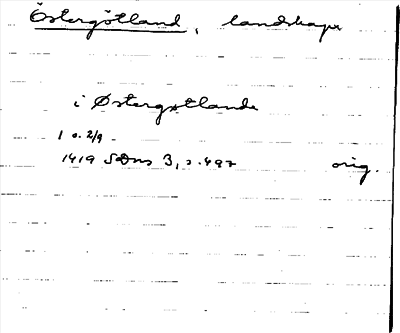 Östergötland, landskapet
i Østergøtlande
1 o. 2/9
1419 SDns 3, s. 497 orig.